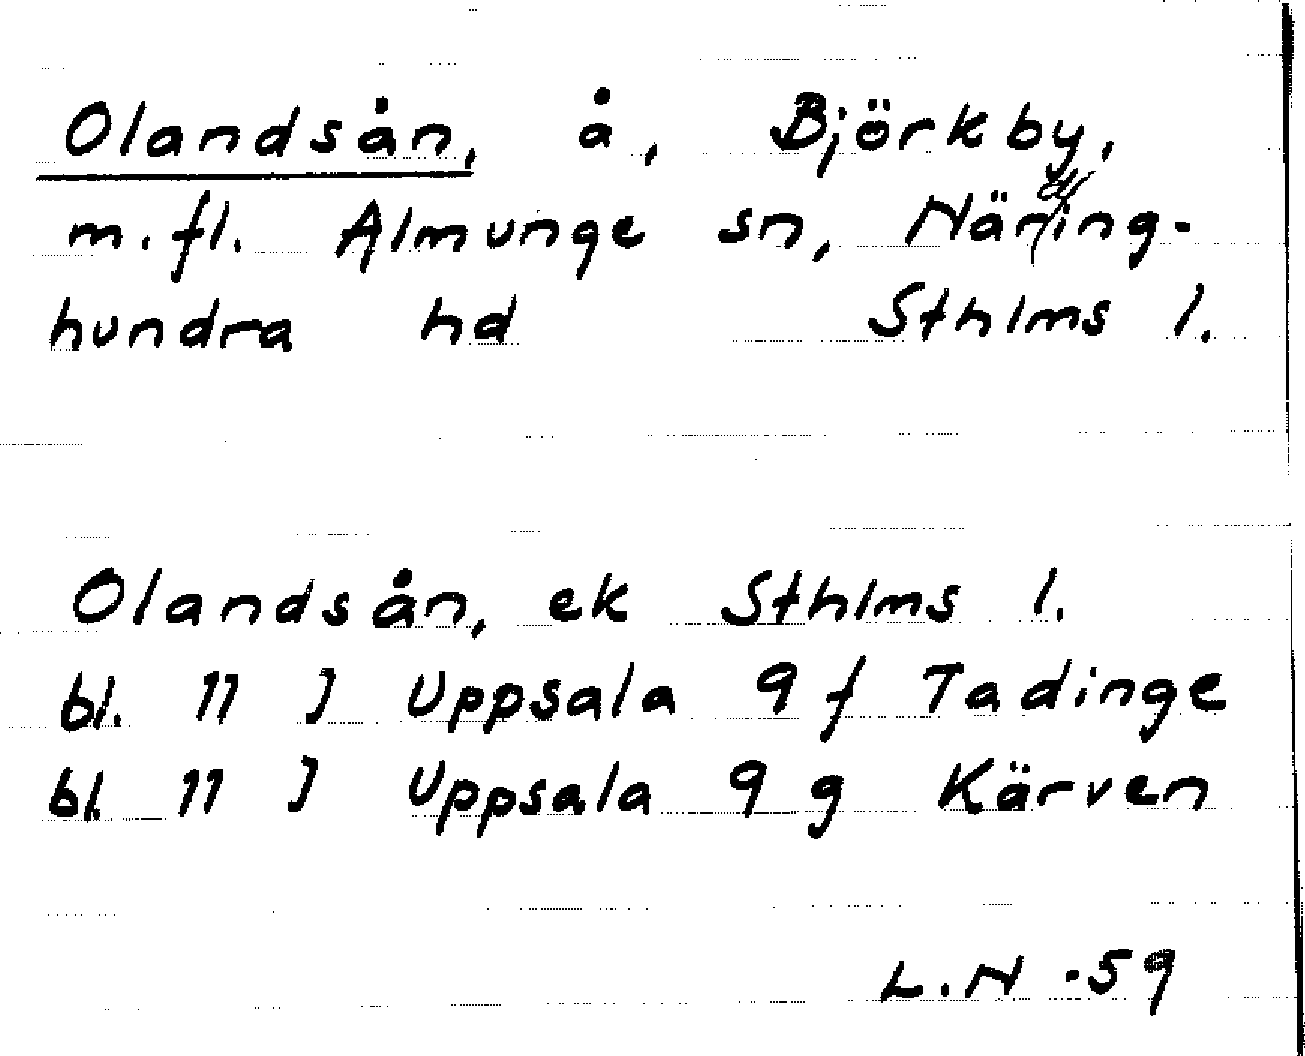 Olandsån, å, Björkby,
m.fl. Almunge sn, Närding-
hundra hd Sthlms l.
Olandsån, ek Sthlms l.
bl. 11 J Uppsala 9 f Tadinge
bl. 11 J Uppsala 9 g Kärven
L.N -59